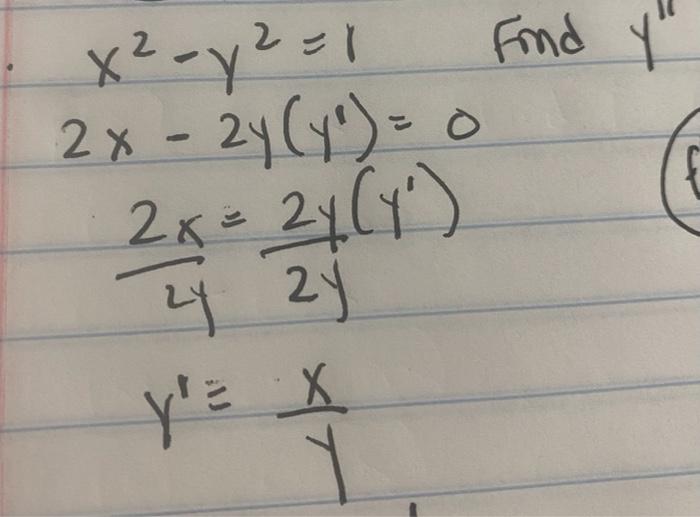 x² - y² = 1 Find y''
2x - 2y(y') = 0
2x/2y = 2y(y')/2y
y' = x/y